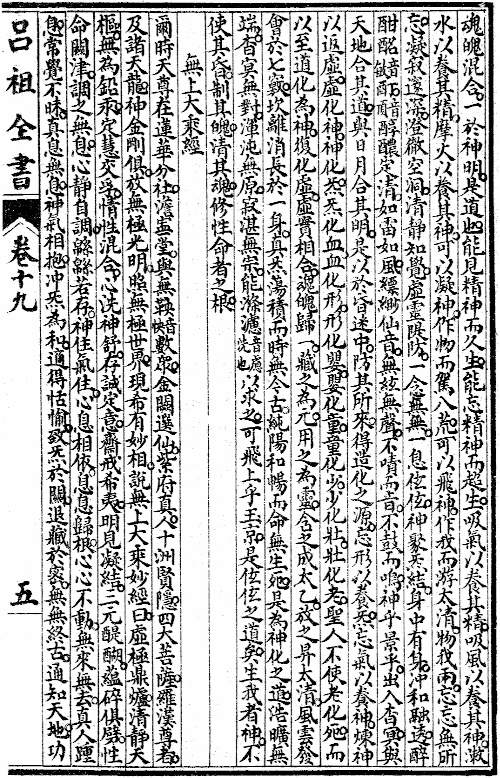 魂魄混合一於神明是道也能見精神而久生能忘精神而超生吸氣以養其精吸風以養其神漱
水以養其精摩火以養其神可以凝神作物而駕八荒可以飛神作我而游太清物我兩忘忘無所
忘凝寂邃深澄微空洞清靜知覺虛靈限防一念無無一息住住神聚炁結身中有身冲和融透醇
酣酩醲定清如雷如風縹緲仙音無絃無聲不嘖而言不鼓而鳴神乎景乎出入杳冥與
天地合其道與日月合其明是以於昏迷中防其所來得造化之源忘形以養炁忘氣以養神煉神
以返虛虛化神神化炁炁化血血化形形化嬰嬰化童童化少少化壯壯化老聖人不使老化死而
以至道化為神復化虛虛實相合魂魄歸一藏之為元用之為靈含之成太乙放之昇太清風雲發
會於七竅坎離消長於一身真炁蕩積而時無今古純陽和暢而命無生死是為神化之道浩曠無
端杳冥無對渾沌無原寂湛無崇能滌濾音慮洗也以求之可飛上乎玉京是住住之道矣生我者神不
使其昏制其魄清其魂修性命者之根
無上大乘經
爾時天尊在蓮華分社澹臺堂與無鞅音快數眾金闕選仙紫府真人十洲賢隱四大菩薩羅漢尊者
及諸天龍神金剛俱放無極光明照無極世界現希有妙相說無上大乘妙經曰虛極鼎爐清靜天
樞無為鉛汞定慧交孚情性混合心洗神舒存誠定意齋戒希夷明見凝結三元醍醐蘊碎俱燬性
命關津調之無息心靜自調緜緜若存神住氣住心息相依息息歸根心心不動無來無去真人踵
息常覺不昧真息無息神氣相抱冲炁為和通得恬愉致炁於關退藏於密無無終古通知天地功
呂祖全書
卷十九
五